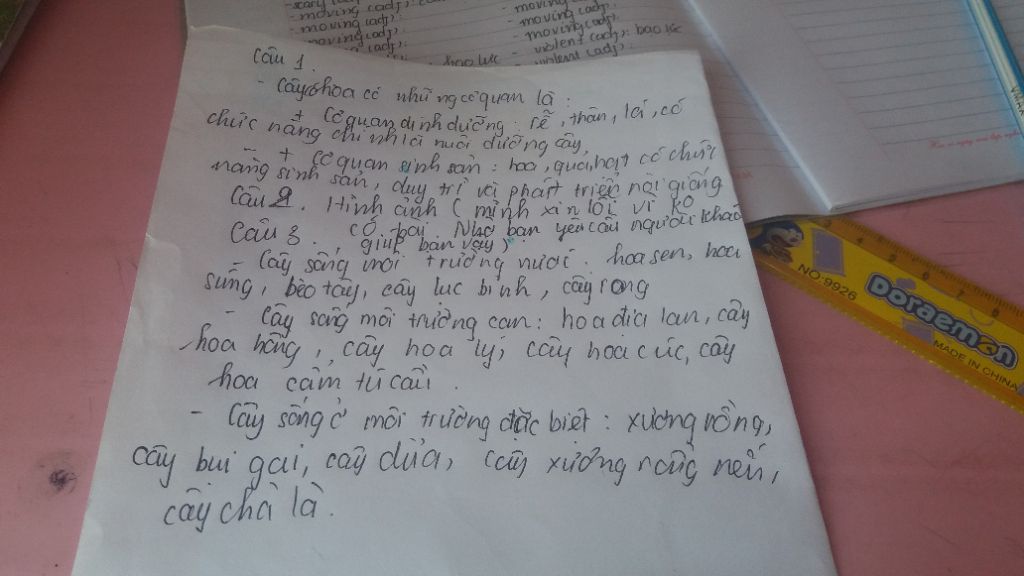 - moving (adj):
- moving (adj):
- moving (adj):
- moving (adj):
- moving (adj):
- violent (adj): bạo lực
bạo lực
violent (adj):
Câu 1.
- Cây có hoa có những cơ quan là:
+ Cơ quan dinh dưỡng: rễ, thân, lá, có
chức năng chính là nuôi dưỡng cây,
- + Cơ quan sinh sản: hoa, quả, hạt có chức
năng sinh sản, duy trì và phát triển nòi giống
Câu 2. Hình ảnh ( mình xin lỗi vì ko
có . Nhờ bạn yêu cầu người khác
giúp bạn vậy)
Câu 3.
- Cây sống môi trường nươi: hoa sen, hoa
súng, bèo tây, cây lục bình, cây rong
- Cây sống môi trường cạn: hoa địa lan, cây
hoa hồng, cây hoa ly, cây hoa cúc, cây
hoa cẩm tú cầu.
- Cây sống ở môi trường đặc biệt: xương rồng,
cây bụi gai, cây dứa, cây xương rồng nến,
cây chà là.
NO.9926
DORaemon
MADE IN CHINA